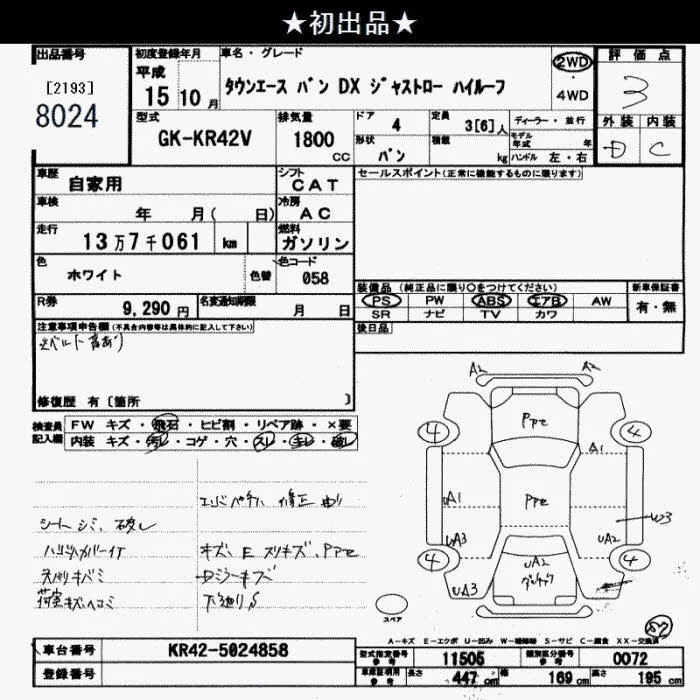 ★初出品★
出品番号
[2193]
8024
初度登録年月
平成
15 10 月
車名・グレード
タウンエース バン DX ジャストロー ハイルーフ
2WD
4WD
評価点
3
外装 内装
D C
型式
GK-KR42V
排気量
1800
cc
ドア 4
形状 バン
定員 3[6]人
積載 kg
ディーラー・並行
モデル年式 年
ハンドル 左・右
車歴
自家用
シフト
CAT
車検
年 月( 日)
冷房
AC
走行
13万7千061 km
燃料
ガソリン
色
ホワイト
色替
色コード
058
R券
9,290円
名変通知期限
月 日
セールスポイント(正常に機能するものに限ります)
装備品(純正品に限り○をつけてください)
PS PW ABS エアB AW
SR ナビ TV カワ
新車保証書
有・無
後日品
注意事項申告欄(不具合内容等は具体的に記入して下さい)
修復歴 有〔箇所 〕
検査員記入欄
FW キズ・飛石・ヒビ割・リペア跡・×要
内装 キズ・汚レ・コゲ・穴・スレ・キレ・破レ
シート シミ、破レ
キズ、E スリキズ、PPe
荷室キズヘコミ
下廻りS
A2 A2
PPe
4 4
A1
A1
PPe
W3
UA3 UA2
UA2
4 4
UA3
スペア
A-キズ E-エクボ U-凹み W-補修跡 S-サビ C-腐食 XX-交換済
車台番号 KR42-5024858
登録番号
型式指定番号 参考 11505
類別区分番号 参考 0072
車庫証明用 参考 長さ 447 cm 幅 169 cm 高さ 195 cm